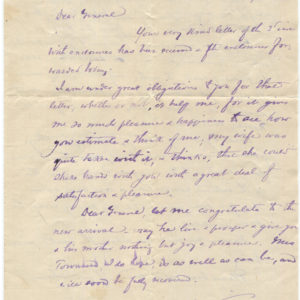 Dear General
Your very kind letter of the 3d inst
with enclosures has been received & the enclosures for
warded today.
I am under great obligations to you for that
letter, whether or not, it help me, for it gives
me so much pleasure & happiness to see, how
you estimate & think of me, my wife was
quite taken with it, & thinks, that she could
shake hands with you with a great deal of
satisfaction & pleasure.
Dear General let me congratulate to the
new arrival & may he live & prosper & give you
& his mother nothing but joy & pleasure. Mrs
Townsend I do hope is as well as can be, and
will soon be fully recovered.